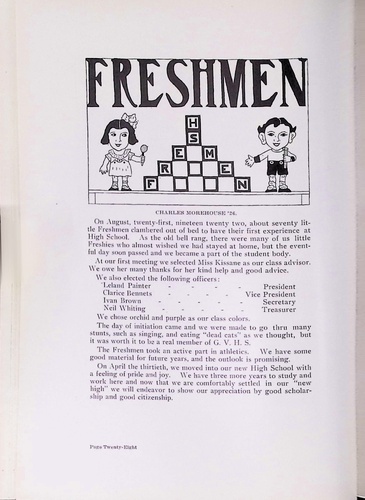 FRESHMEN
H
S
R E M
F R E M E N
CHARLES MOREHOUSE '26.
On August, twenty-first, nineteen twenty two, about seventy lit-
tle Freshmen clambered out of bed to have their first experience at
High School. As the old bell rang, there were many of us little
Freshies who almost wished we had stayed at home, but the event-
ful day soon passed and we became a part of the student body.
At our first meeting we selected Miss Kissane as our class advisor.
We owe her many thanks for her kind help and good advice.
We also elected the following officers:
Leland Painter - - - - President
Clarice Bennets - - - - Vice President
Ivan Brown - - - - Secretary
Neil Whiting - - - - Treasurer
We chose orchid and purple as our class colors.
The day of initiation came and we were made to go thru many
stunts, such as singing, and eating "dead cats" as we thought, but
it was worth it to be a real member of G. V. H. S.
The Freshmen took an active part in athletics. We have some
good material for future years, and the outlook is promising.
On April the thirtieth, we moved into our new High School with
a feeling of pride and joy. We have three more years to study and
work here and now that we are comfortably settled in our "new
high" we will endeavor to show our appreciation by good scholar-
ship and good citizenship.
Page Twenty-Eight